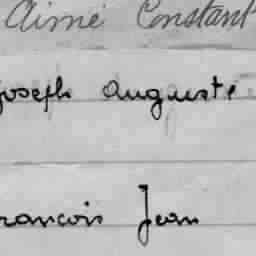 Aimé Constant
Joseph Auguste
François Jean